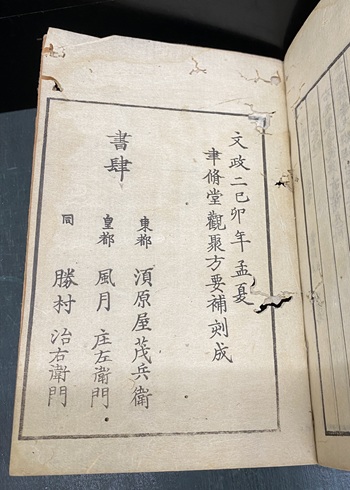 文政二己卯年孟夏
聿脩堂觀聚方要補刻成
書肆
東都 須原屋茂兵衛
皇都 風月庄左衛門
同 勝村治右衛門